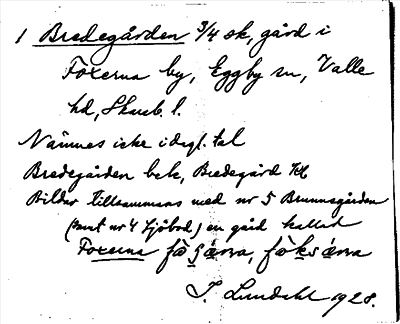 1 Bredegården 3/4 sk, gård i
Foxerna by, Eggby sn, Valle
hd, Skarab. l.
Nämnes icke i dagl. tal
Bredegården bek, Bredegård Kb
Bildar tillsammans med nr 5 Brunnsgården
(samt nr 4 Sjöbod,) en gård kallad
Foxerna
J. Lundahl 1928.